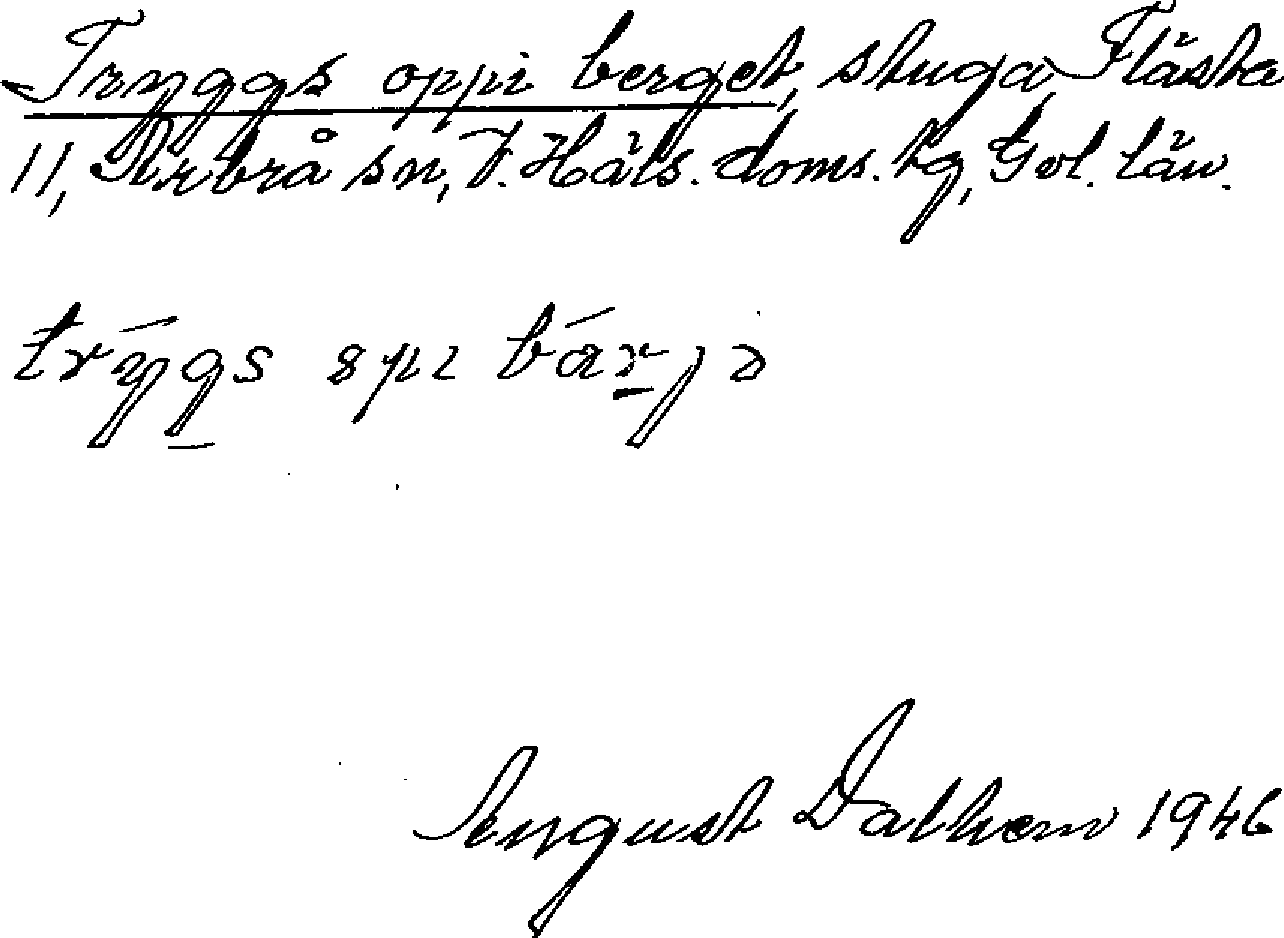 Tryggs oppi berget, stuga, Flästa
11, Arbrå sn, V. Häls. doms. tg, Gvl. län.
trýgs opı bárjə
August Dalhem 1946